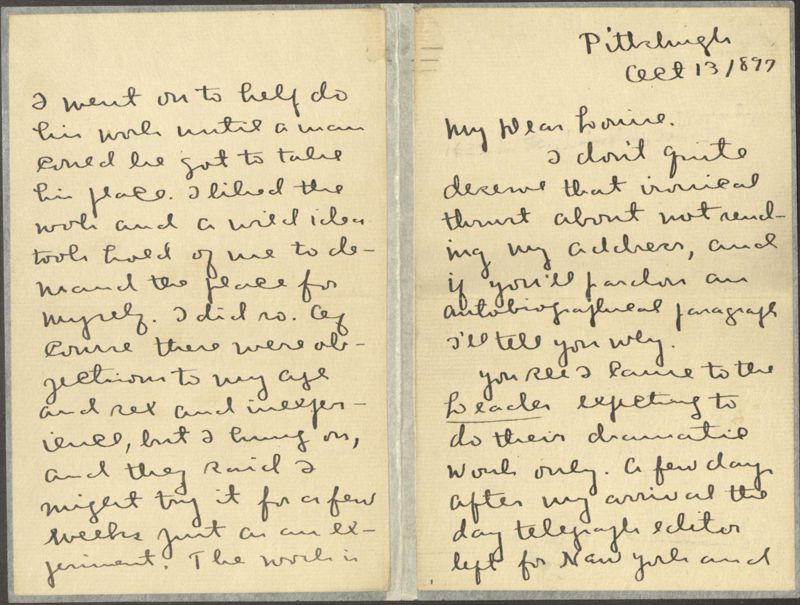 Pittsburgh
Oct 13/1897
My Dear Louise.
I don't quite
deserve that ironical
thrust about not send-
ing my address, and
if you'll pardon an
autobiographical paragraph
I'll tell you why.
You see I came to the
Leader expecting to
do their dramatic
work only. A few days
after my arrival the
day telegraph editor
left for New York and
I went on to help do
his work until a man
could be got to take
his place. I liked the
work and a wild idea
took hold of me to de-
mand the place for
myself. I did so. Of
course there were ob-
jections to my age
and sex and inexper-
ience, but I hung on,
and they said I
might try it for a few
weeks just as an ex-
periment. The work is